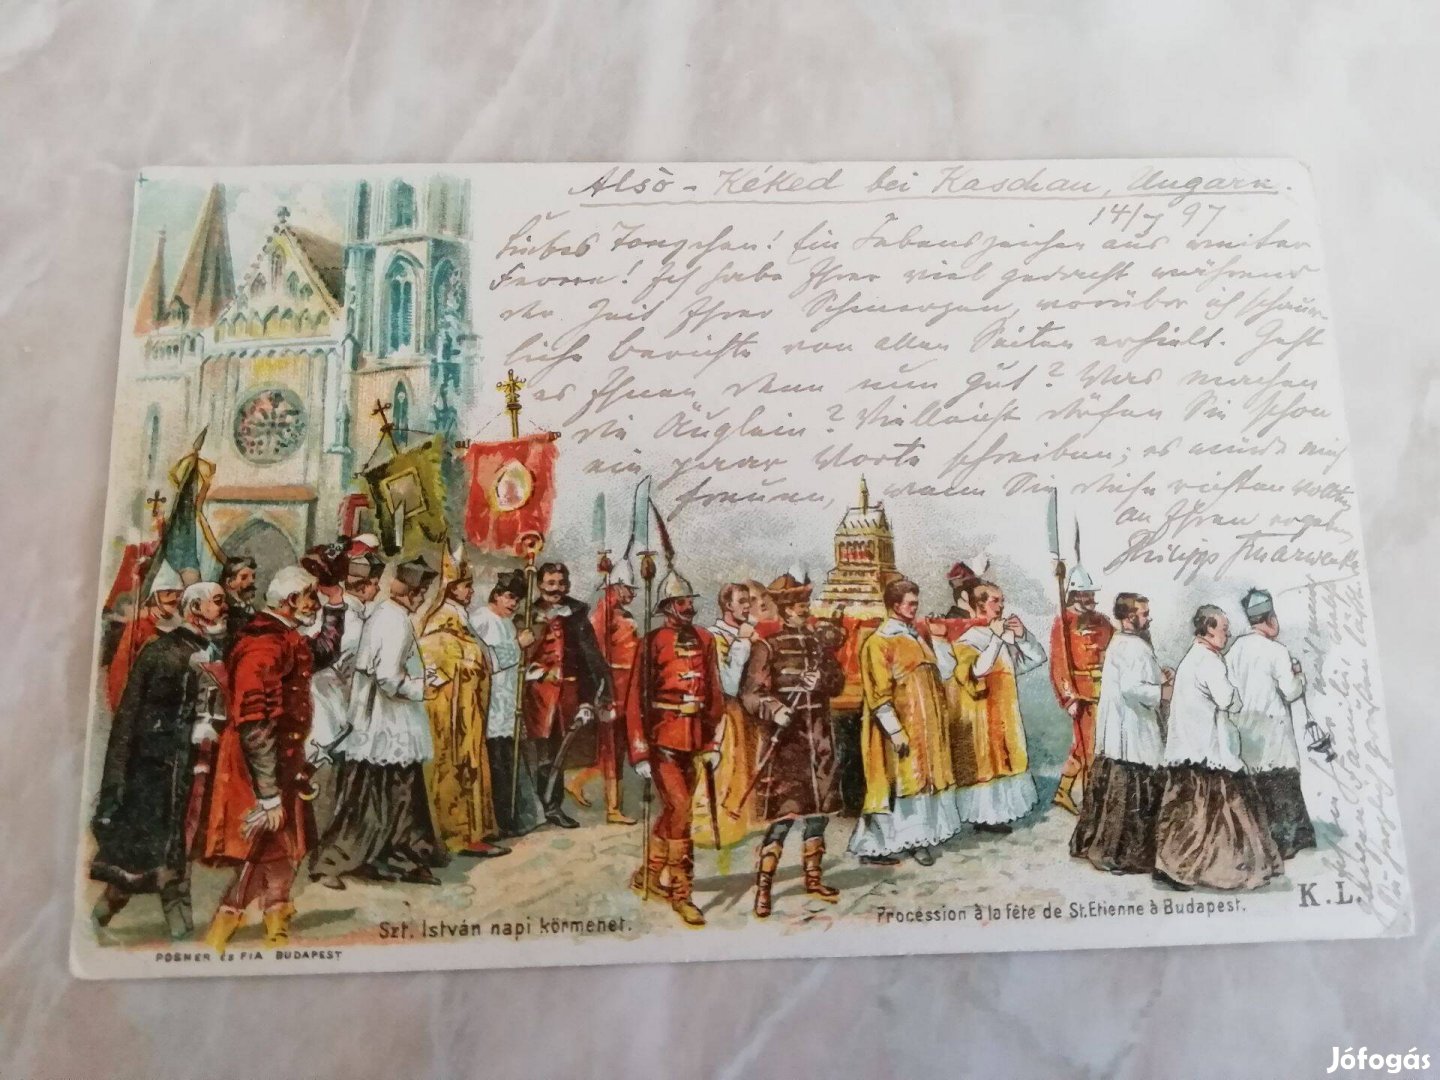 Alsò-Kéked bei Kaschau, Ungarn.
14/7 97
Liebes Tonychen! Ein Lebenszeichen aus weiter
Ferne! Ich habe Ihrer viel gedacht während
der Zeit Ihrer Schmerzen, worüber ich schauer-
liche Berichte von allen Seiten erhielt. Geht
es Ihnen denn nun gut? Was machen
die Äuglein? Vielleicht dürfen Sie schon
ein paar Worte schreiben; es würde mich
freuen, wenn Sie diese richten wollten
an Ihren ergeb.
Philipp
Szt. István napi körmenet.
Procession à la fête de St. Etienne à Budapest.
K.L.
POSNER és FIA BUDAPEST
Jófogás